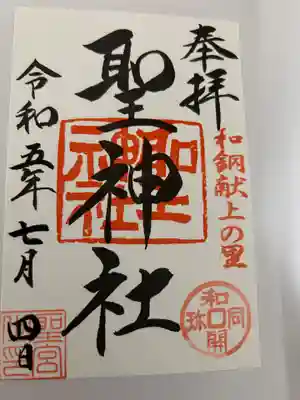 奉拝
和銅献上の里
和同開珎
聖神社
聖神社
令和五年七月四日